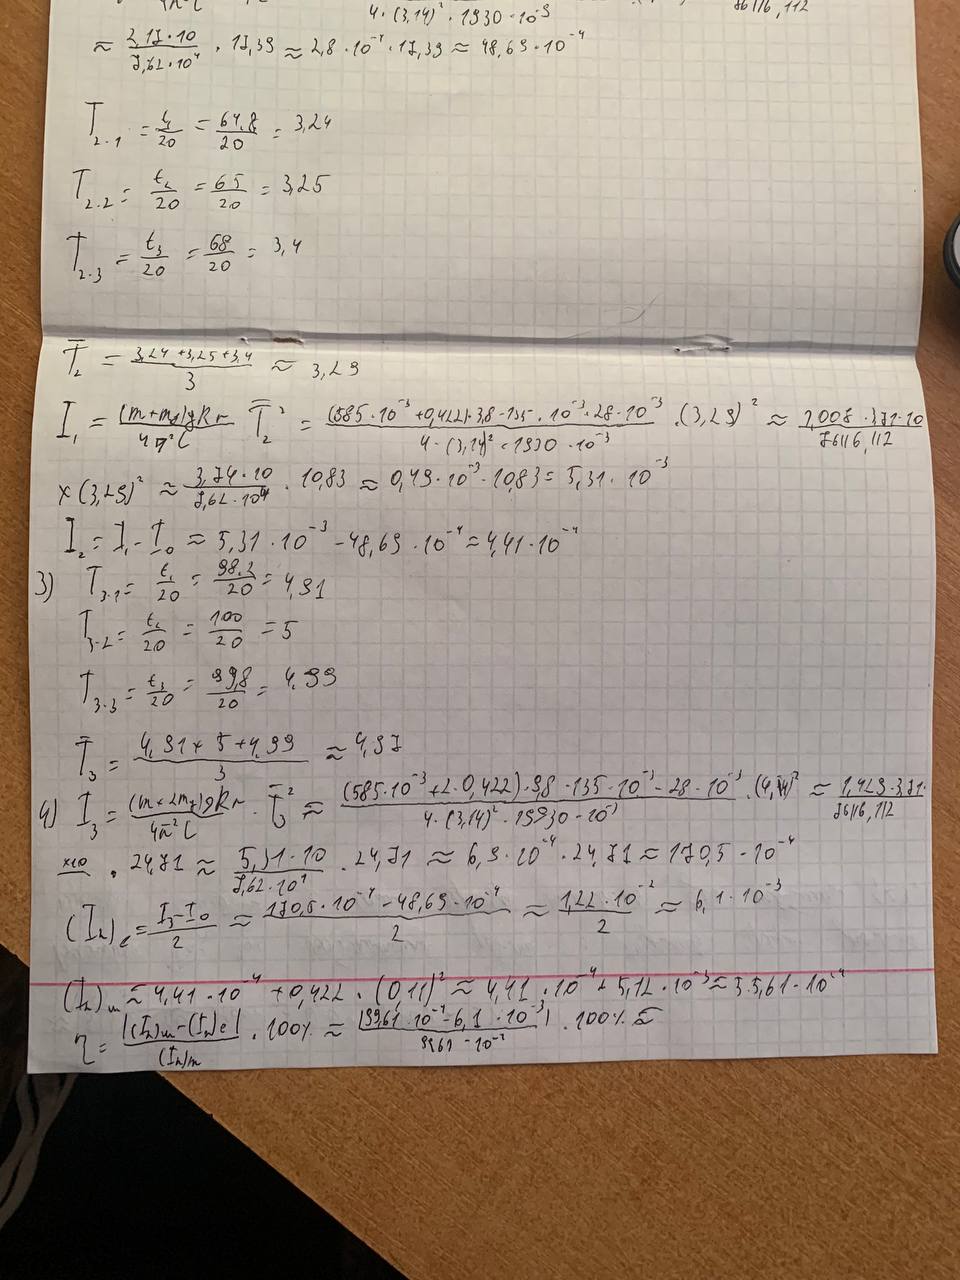 4·(3,14)²·1930·10⁻³ 76116,112
≈ 2,17·10/7,62·10⁴ · 17,39 ≈ 2,8·10⁻⁴·17,39 ≈ 48,69·10⁻⁴
T₂.₁ = t₁/20 = 64,8/20 = 3,24
T₂.₂ = t₂/20 = 65/20 = 3,25
T₂.₃ = t₃/20 = 68/20 = 3,4
T̄₂ = 3,24+3,25+3,4/3 ≈ 3,29
I₁ = (m+m₁)gRr/4π²l T̄₂² = (585·10⁻³+0,422)·9,8·135·10⁻³·28·10⁻³/4·(3,14)²·1930·10⁻³ ·(3,29)² ≈ 1,008·3,71·10/76116,112
×(3,29)² ≈ 3,74·10/7,62·10⁴ · 10,83 ≈ 0,49·10⁻³·10,83 = 5,31·10⁻³
I₂ = I₁ - I₀ ≈ 5,31·10⁻³ - 48,69·10⁻⁴ = 4,41·10⁻⁴
3) T₃.₁ = t₁/20 = 98,2/20 = 4,91
T₃.₂ = t₂/20 = 100/20 = 5
T₃.₃ = t₃/20 = 99,8/20 = 4,99
T̄₃ = 4,91+5+4,99/3 ≈ 4,97
4) I₃ = (m+2m₁)gRr/4π²l · T̄₃² = (585·10⁻³+2·0,422)·98·135·10⁻³·28·10⁻³/4·(3,14)²·19930·10⁻³ ≈ 1,429·3,71·/76116,112
×10 · 24,71 ≈ 5,31·10/7,62·10⁴ · 24,71 ≈ 6,9·10⁻⁴·24,71 ≈ 170,5·10⁻⁴
= I₃-I₀/2 ≈ 170,5·10⁻⁴-48,69·10⁻⁴/2 ≈ 1,22·10⁻²/2 ≈ 6,1·10⁻³
≈ 4,41·10⁻⁴+0,422·(0,11)² ≈ 4,41·10⁻⁴+5,12·10⁻³ ≈
·100% ≈ ·100% ≈